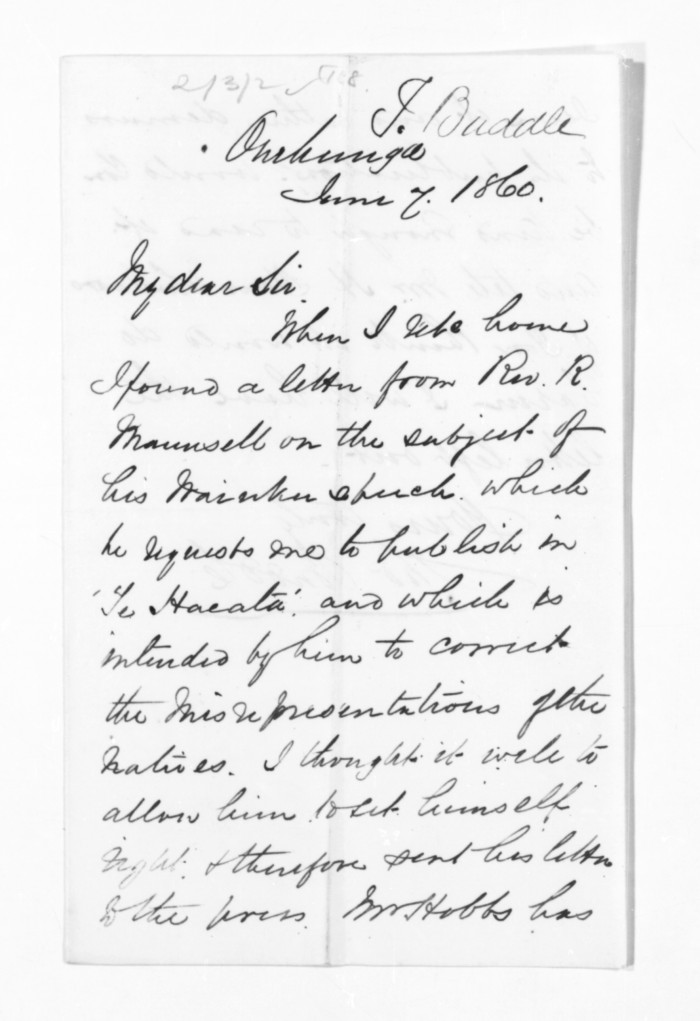 2/3/2
T. Buddle
Onehunga
June 7. 1860.
My dear Sir.
When I retd home
I found a letter from Rev. R.
Maunsell on the subject of
his Waiuku speech which
he requests me to publish in
'Te Haeata'. and which is
intended by him to correct
the misrepresentations of the
natives. I thought it well to
allow him to set himself
right. & therefore sent his letter
to the press. Mr Hobbs has